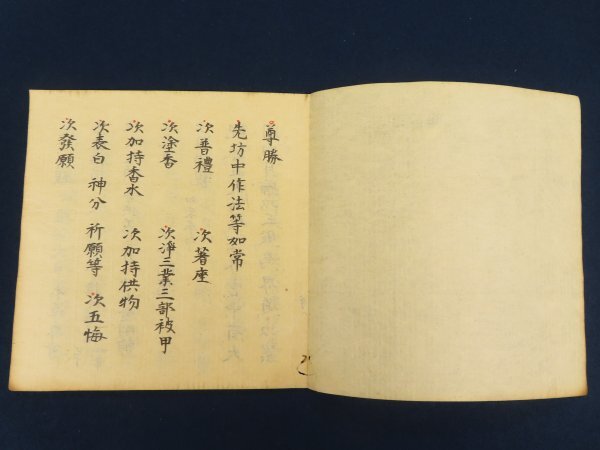 尊勝
先坊中作法等如常
次普禮 次著座
次塗香 次淨三業三部被甲
次加持香水 次加持供物
次表白 神分 祈願等 次五悔
次發願